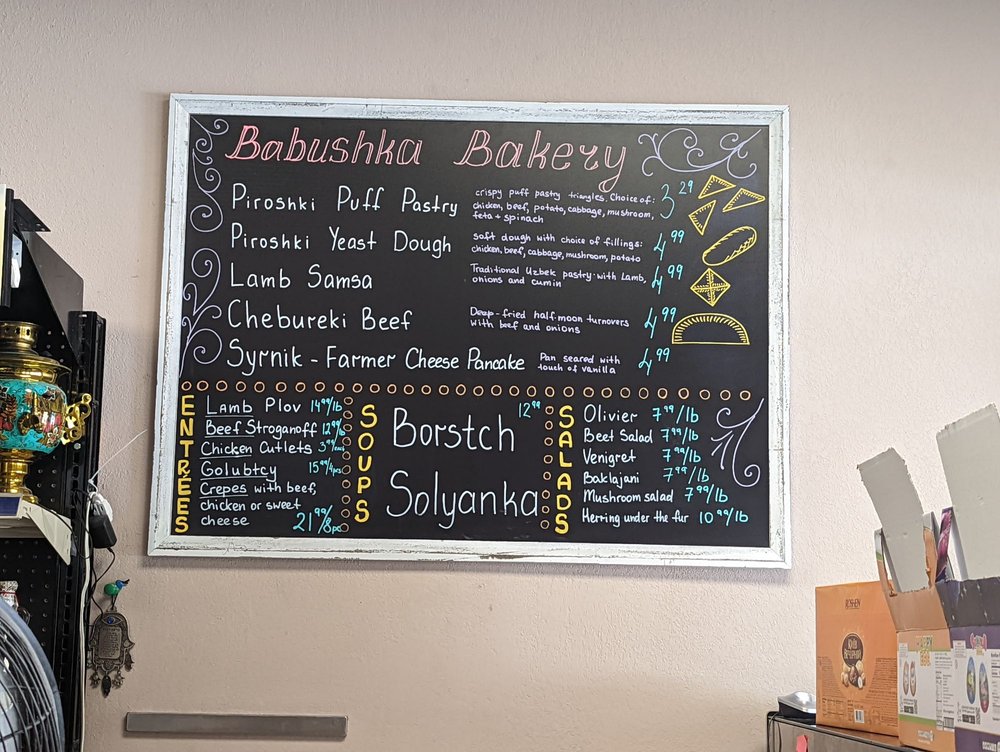 Babushka Bakery
Piroshki Puff Pastry crispy puff pastry triangles. Choice of: 3 29
chicken, beef, potato, cabbage, mushroom,
feta + spinach
Piroshki Yeast Dough soft dough with choice of fillings: 4 99
chicken, beef, cabbage, mushroom, potato
Lamb Samsa Traditional Uzbek pastry with Lamb, 4 99
onions and cumin
Chebureki Beef Deep-fried half-moon turnovers 4 99
with beef and onions
Syrnik - Farmer Cheese Pancake Pan seared with 4 99
touch of vanilla
ENTRÉES
Lamb Plov 14 99/lb
Beef Stroganoff 12 99/lb
Chicken Cutlets 3 99
Golubtcy 15 99/4pcs
Crepes with beef,
chicken or sweet
cheese 21 99/8pc
SOUPS
12 99
Borstch
Solyanka
SALADS
Olivier 7 99/lb
Beet Salad 7 99/lb
Venigret 7 99/lb
Baklajani 7 99/lb
Mushroom salad 7 99/lb
Herring under the fur 10 99/lb
ROSHEN